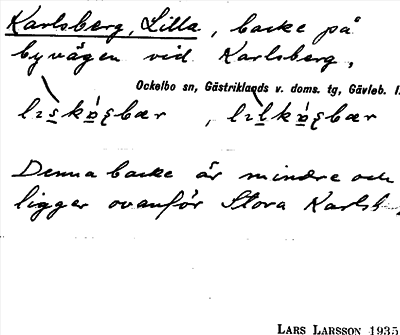 Karlsberg, Lilla, backe på
byvägen vid Karlsberg,
Ockelbo sn, Gästriklands v. doms. tg, Gävleb. l.
Denna backe är mindre och
ligger ovanför Stora Karlsb.
LARS LARSSON 1935